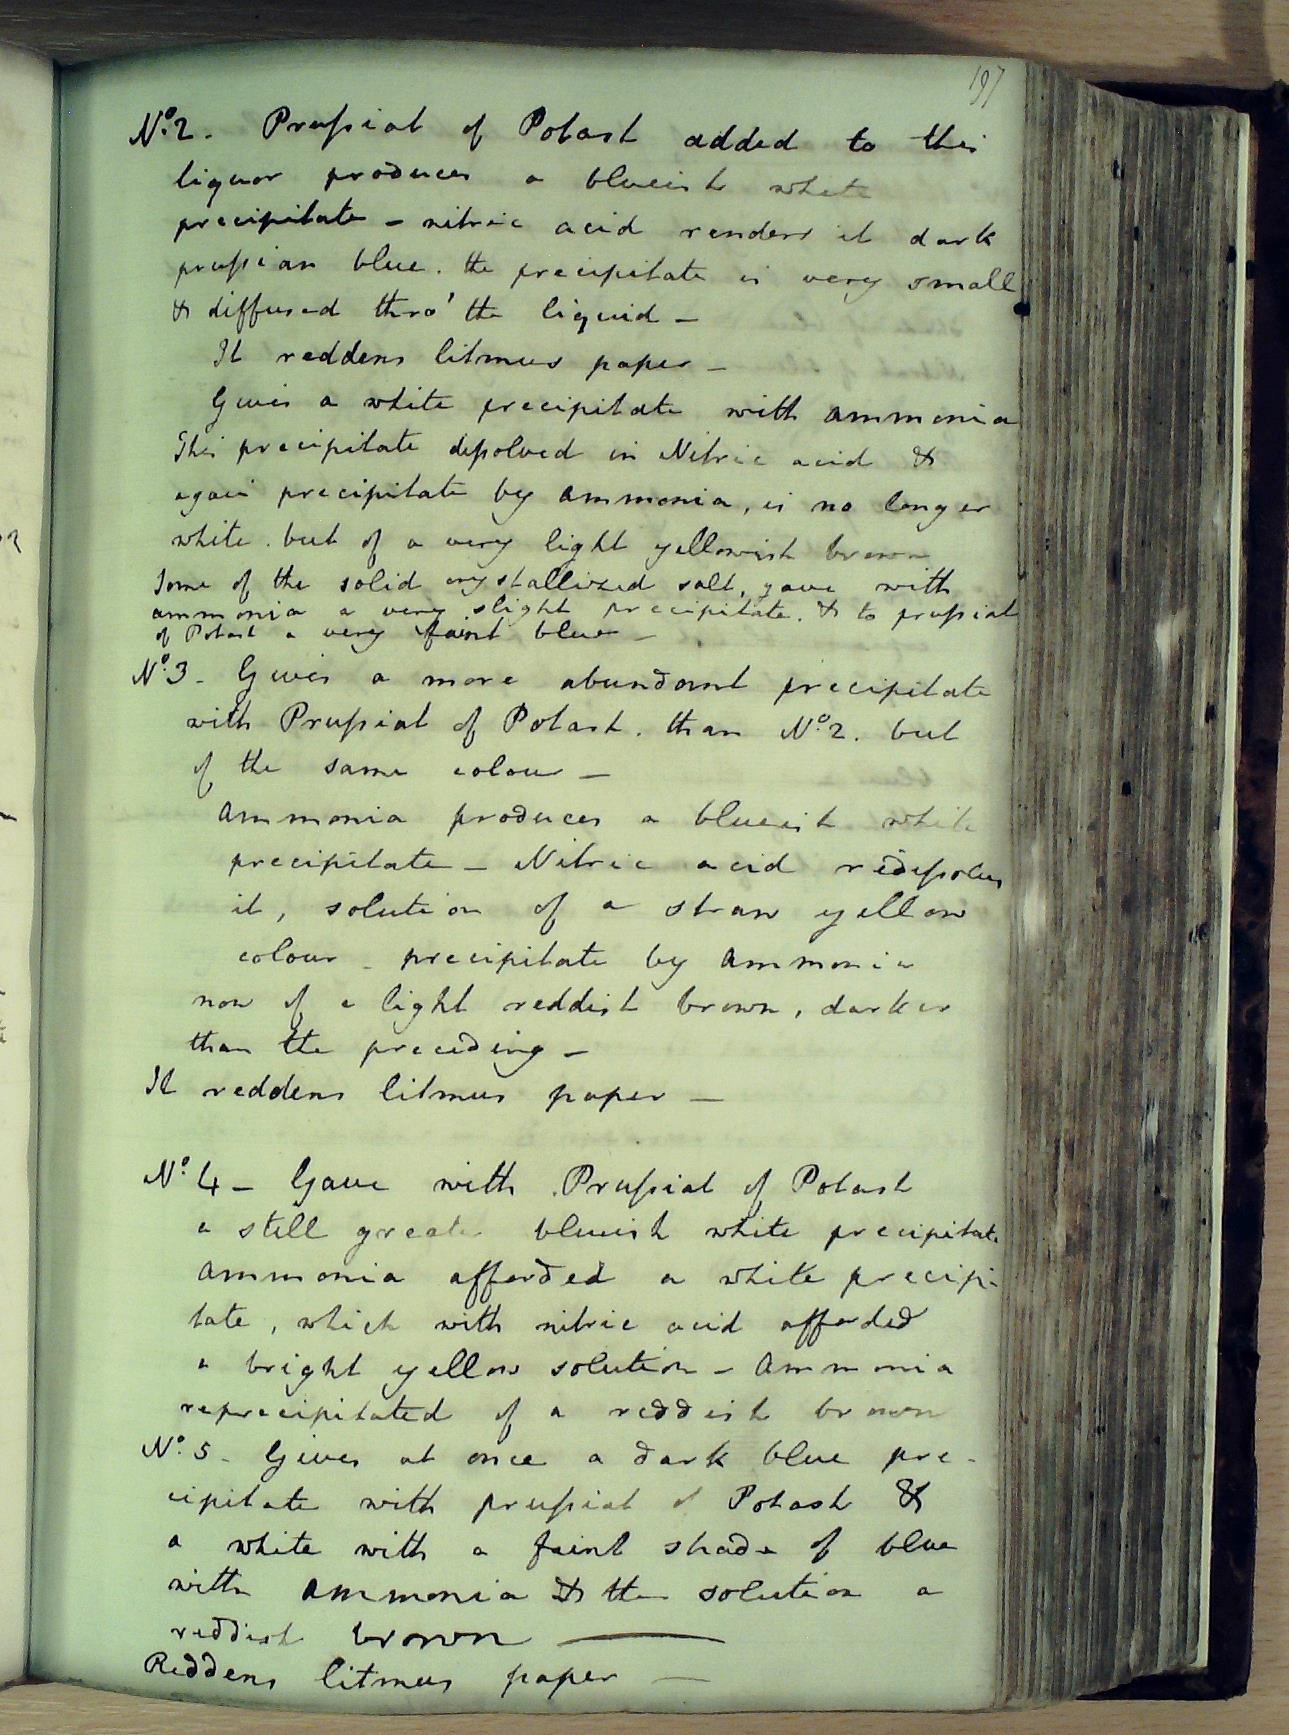 197
No. 2. Prussiat of Potash added to this
liquor produces a blueish white
precipitate - nitric acid renders it dark
prussian blue. the precipitate is very small
& diffused thro' the liquid -
It reddens litmus paper -
Gives a white precipitate with ammonia
This precipitate dissolved in Nitric acid &
again precipitate by ammonia, is no longer
white. but of a very light yellowish brown
Some of the solid crystallized salt, gave with
ammonia a very slight precipitate. & to prussiat
of Potash a very faint blue -
No. 3 - Gives a more abundant precipitate
with Prussiat of Potash. than No. 2. but
of the same colour -
Ammonia produces a blueish white
precipitate - Nitric acid redissolves
it, solution of a straw yellow
colour - precipitate by Ammonia
now of a light reddish brown, darker
than the preceding -
It reddens litmus paper -
No. 4 - Gave with Prussiat of Potash
a still greater blueish white precipitate
Ammonia afforded a white precipi-
tate, which with nitric acid afforded
a bright yellow solution - Ammonia
reprecipitated of a reddish brown
No. 5 - Gives at once a dark blue pre-
cipitate with prussiat of Potash &
a white with a faint shade of blue
with ammonia & the solution a
reddish brown -
Reddens litmus paper -